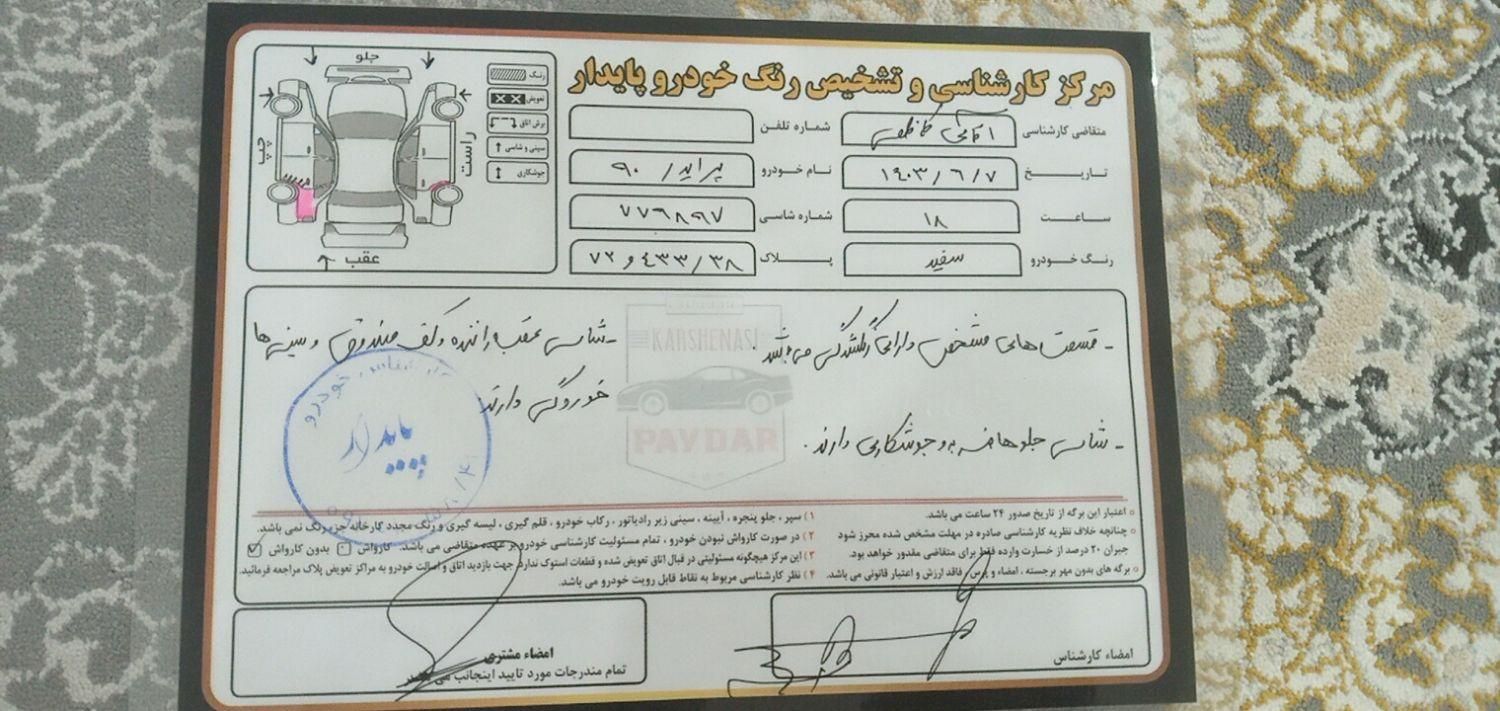 مرکز کارشناسی و تشخیص رنگ خودرو پایدار
متقاضی کارشناسی
شماره تلفن
تاریخ ۱۴۰۳/۶/۷
نام خودرو پراید ۹۰
ساعت ۱۸
شماره شاسی ۷۷۶۸۹۷
رنگ خودرو سفید
پلاک ۷۲ و ۴۳۳/۳۸
جلو
رنگ
تعویض
برش اتاق
سینی و شاسی
جوشکاری
چپ
راست
عقب
- قسمت های مشخص دارای رنگشدگی میباشد.
- شاسی جلوها ضربه و جوشکاری دارند.
- شاسی عقب راننده و کف صندوق و سینی ها
خوردگی دارند
KARSHENASI
PAYDAR
کارشناسی خودرو
پایدار
اعتبار این برگه از تاریخ صدور ۲۴ ساعت می باشد.
چنانچه خلاف نظریه کارشناسی صادره در مهلت مشخص شده محرز شود
جبران ۲۰ درصد از خسارت وارده فقط برای متقاضی مقدور خواهد بود.
برگه های بدون مهر برجسته ، امضاء و پرس فاقد ارزش و اعتبار قانونی می باشد.
۱) سپر ، جلو پنجره ، آیینه ، سینی زیر رادیاتور ، رکاب خودرو ، قلم گیری ، لیسه گیری و رنگ مجدد کارخانه جزء رنگ نمی باشد.
۲) در صورت کارواش نبودن خودرو ، تمام مسئولیت کارشناسی خودرو بر عهده متقاضی می باشد. کارواش بدون کارواش
۳) این مرکز هیچگونه مسئولیتی در قبال اتاق تعویض شده و قطعات استوک ندارد. جهت بازدید اتاق و اصالت خودرو به مراکز تعویض پلاک مراجعه فرمائید.
۴) نظر کارشناسی مربوط به نقاط قابل رویت خودرو می باشد.
امضاء کارشناس
امضاء مشتری
تمام مندرجات مورد تایید اینجانب می